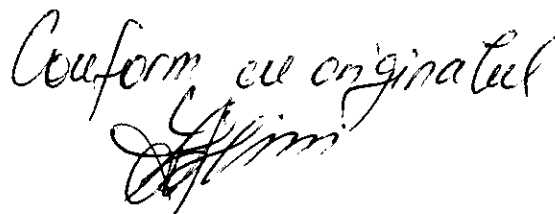 Conform cu originalul